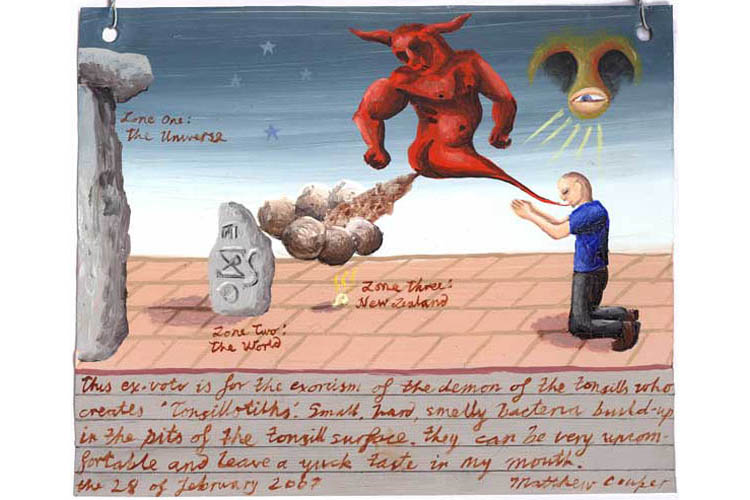 Zone One:
the Universe
Zone Three:
New Zealand
Zone Two:
the World
This ex-voto is for the exorcism of the demon of the tonsills who
creates "Tonsillotiths". Small, hard, smelly bacteria build-up
in the pits of the tonsill surface. they can be very uncom-
fortable and leave a yuck taste in my mouth.
the 28 of February 2007 Matthew Couper